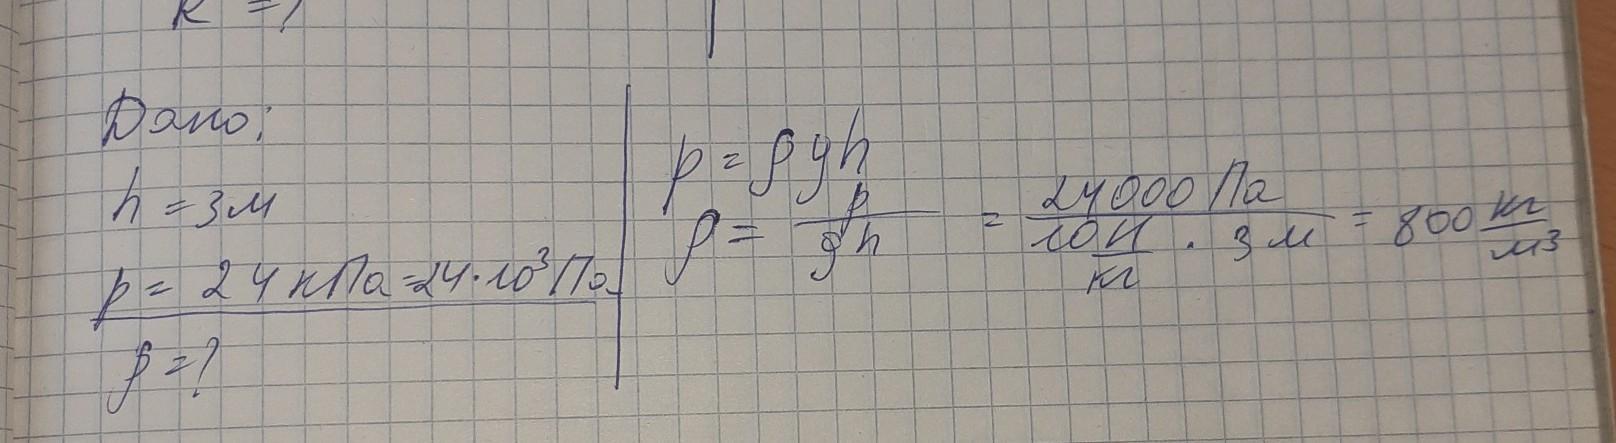 R = ?
Дано:
h = 3 м
p = 24 кПа = 24 · 10³ Па
ρ = ?
p = ρgh
ρ = p / gh = 24000 Па / 10 Н/кг · 3 м = 800 кг/м³